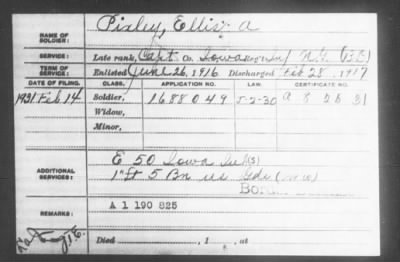 NAME OF SOLDIER: Pixley, Ellis A
SERVICE: Late rank, Capt Co. Iowa Reg't Inf N.G. (B.B)
TERM OF SERVICE: Enlisted June 26, 1916 Discharged Feb 28, 1917
DATE OF FILING. CLASS. APPLICATION NO. LAW. CERTIFICATE NO.
1931 Feb 14 Soldier, 1688049 5-2-30 A 8 26 31
Widow,
Minor,
ADDITIONAL SERVICES: E 50 Iowa Inf (S)
1" Lt 5 Bn US Gds (WW)
Bord
REMARKS: A 1 190 825
Died , 1 , at